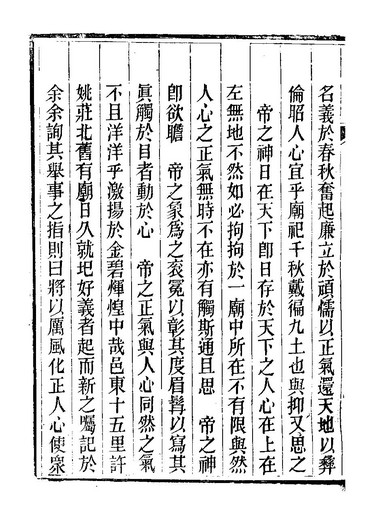 名義於春秋奮起廉立於頑懦以正氣還天地以彝
倫昭人心宜乎廟祀千秋戴徧九土也與抑又思之
帝之神日在天下卽日存於天下之人心在上在
左無地不然如必拘拘於一廟中所在不有限與然
人心之正氣無時不在亦有觸斯通且思　帝之神
卽欲瞻　帝之象爲之袞冕以彰其度眉髯以寫其
眞觸於目者動於心　帝之正氣與人心同然之氣
不且洋洋乎激揚於金碧煇煌中哉邑東十五里許
姚莊北舊有廟日久就圮好義者起而新之囑記於
余余詢其舉事之指則曰將以厲風化正人心使衆